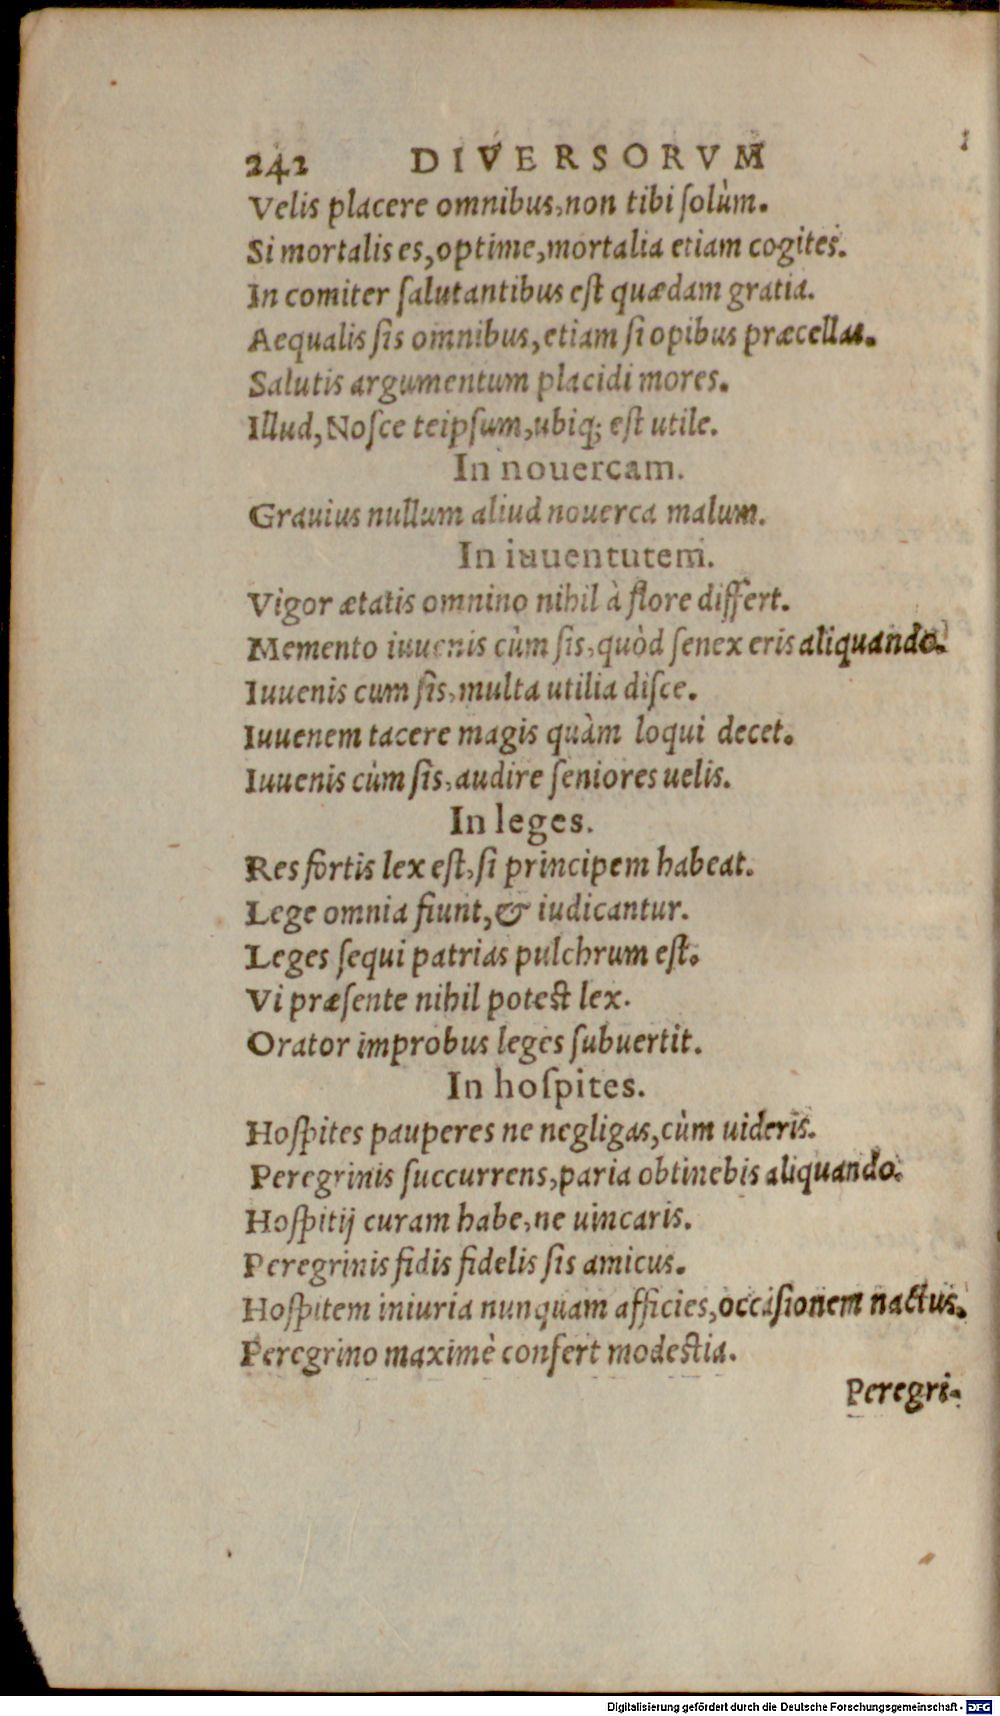 242 DIVERSORVM
Velis placere omnibus, non tibi ſolùm.
Si mortalis es, optime, mortalia etiam cogites.
In comiter ſalutantibus eſt quædam gratia.
Aequalis ſis omnibus, etiam ſi opibus præcellas.
Salutis argumentum placidi mores.
Illud, Noſce teipſum, ubiq; eſt utile.
In nouercam.
Grauius nullum aliud nouerca malum.
In iuuentutem.
Vigor ætatis omnino nihil à flore differt.
Memento iuuenis cùm ſis, quòd ſenex eris aliquando.
Iuuenis cum ſis, multa utilia diſce.
Iuuenem tacere magis quàm loqui decet.
Iuuenis cùm ſis, audire ſeniores uelis.
In leges.
Res fortis lex eſt, ſi principem habeat.
Lege omnia fiunt, & iudicantur.
Leges ſequi patrias pulchrum eſt.
Vi præſente nihil poteſt lex.
Orator improbus leges ſubuertit.
In hoſpites.
Hoſpites pauperes ne negligas, cùm uideris.
Peregrinis ſuccurrens, paria obtinebis aliquando.
Hoſpitij curam habe, ne uincaris.
Peregrinis fidis fidelis ſis amicus.
Hoſpitem iniuria nunquam afficies, occaſionem nactus.
Peregrino maximè confert modeſtia.
Peregri-
Digitalisierung gefördert durch die Deutsche Forschungsgemeinschaft - DFG